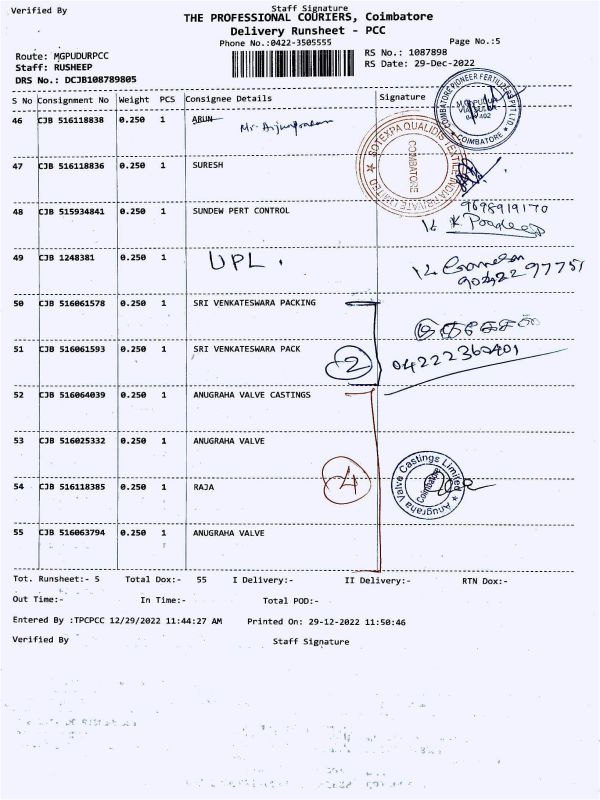 Verified By Staff Signature
THE PROFESSIONAL COURIERS, Coimbatore
Delivery Runsheet - PCC
Phone No.:0422-3505555 Page No.:5
Route: MGPUDURPCC RS No.: 1087898
Staff: RUSHEEP RS Date: 29-Dec-2022
DRS No.: DCJB108789805
S No Consignment No Weight PCS Consignee Details Signature
COIMBATORE PIONEER FERTILIZERS PVT LTD
COIMBATORE
46 CJB 516118838 0.250 1 ARUN
SOTEXPA QUALIDIS TEXTILE INDIA PRIVATE LIMITED
COIMBATORE
47 CJB 516118836 0.250 1 SURESH
48 CJB 515934841 0.250 1 SUNDEW PERT CONTROL
9698919170
49 CJB 1248381 0.250 1 UPL.
50 CJB 516061578 0.250 1 SRI VENKATESWARA PACKING
51 CJB 516061593 0.250 1 SRI VENKATESWARA PACK
2
04222360401
52 CJB 516064039 0.250 1 ANUGRAHA VALVE CASTINGS
53 CJB 516025332 0.250 1 ANUGRAHA VALVE
4
Anugraha Valve Castings Limited
Coimbatore
54 CJB 516118385 0.250 1 RAJA
55 CJB 516063794 0.250 1 ANUGRAHA VALVE
Tot. Runsheet:- 5 Total Dox:- 55 I Delivery:- II Delivery:- RTN Dox:-
Out Time:- In Time:- Total POD:-
Entered By :TPCPCC 12/29/2022 11:44:27 AM Printed On: 29-12-2022 11:50:46
Verified By Staff Signature